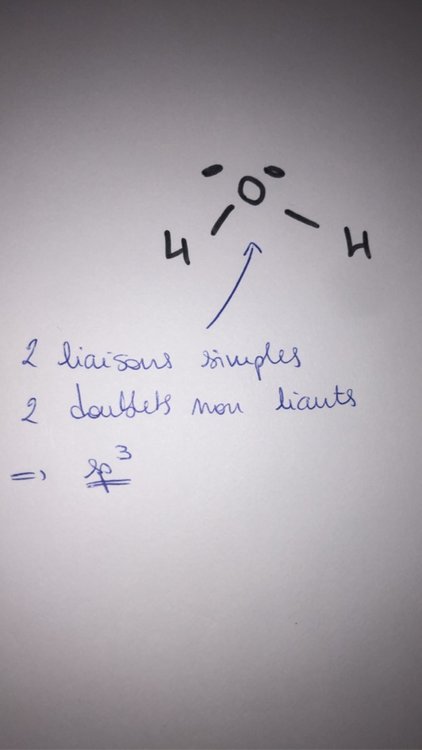 O
H H
2 liaisons simples
2 doublets non liants
=> sp³